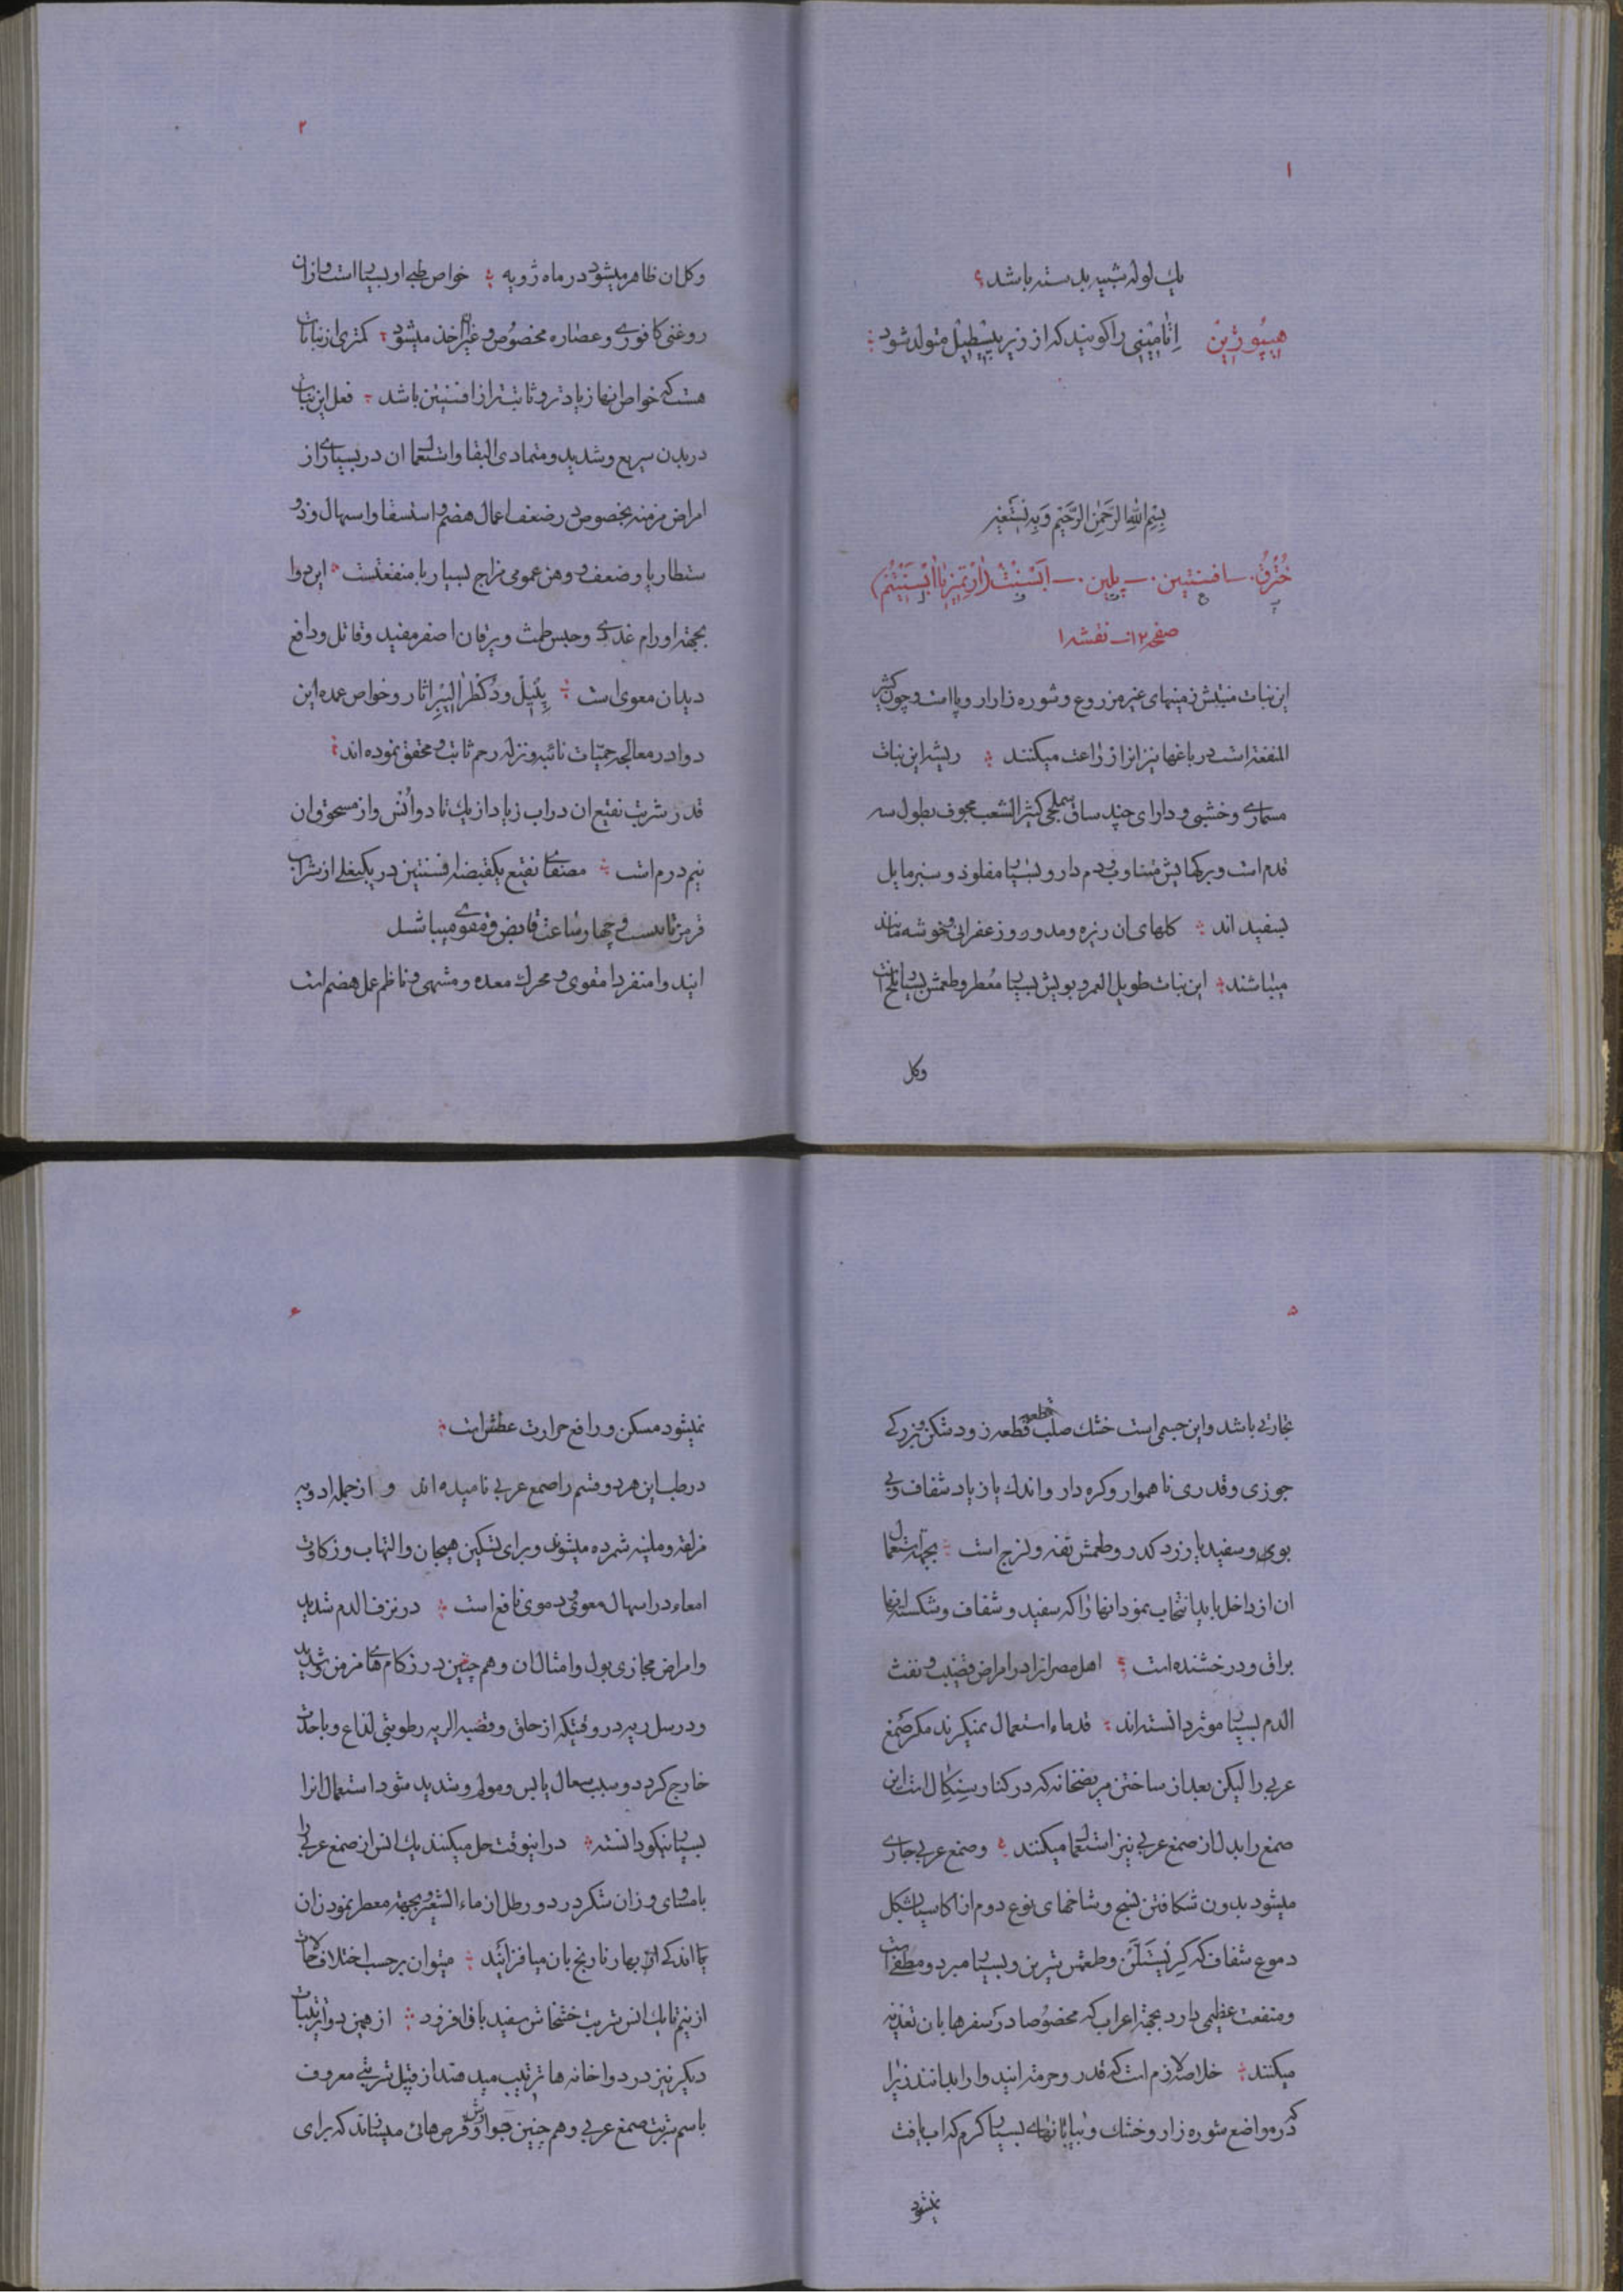 ۱
یك لوله شبیه بدسته باشد
هیپُوژِین اِتامِینی راکویند که از زیر پیسطیل متولد شود
بِسْمِ اللّٰهِ الرَّحْمٰنِ الرَّحیْمِ وَبِهِ نَسْتَعیْن
خُتْرقُ. ــ افسنتین. ــ پلین. ــ اَبْسَنْتْ (اَرْتِمیزیا اَبْسَنْتْیُمْ)
صفحه ۱۲ ــ نقشه ۱
این نبات منبتش زمینهای غیر مزروع و شوره زارارویا است و چون کثیر
المنفعة است در باغها نیز انرا زراعت میکنند ریشه این نبات
مسماری و خشبی و دارای چند ساق سملجی کثیرالشعب مجوف بطول سه
قدم است و برکهایش متناوب و دم دار و بسیار مفلوذ و سبز مایل
بسفید اند کلهای ان ریزه و مدور و زعفرانی و خوشه مانند
میباشند این نبات طویل العمر و بویش بسیار معُطر و طعمش بسیار تلخ است
وکل
۲
وکل ان ظاهر میشود در ماه ژویه خواص طبی او بسیار است و ازان
روغنی کافوری و عصاره مخصُوص و غیره اخذ میشود کمتری از نباتات
هست که خواص انها زیادتر و ثابت تر از افسنتین باشد فعل این نبات
در بدن سریع و شدید و متمادی البقا و استعمال ان در بسیاری از
امراض مزمنه بخصوص در ضعف اعمال هضم و استسقا و اسهال و ذو
سنطاریا و ضعف و وهن عمومی مزاج بسیار با منفعتست این دوا
بجهة اورام غددی و حبس طمث و یرقان اصفر مفید و قاتل و دافع
دیدان معوی است پِنِیلْ و دُکطرْ اَلِیبْرِ اثار و خواص عمده این
دوا در معالجه حمیّات نائبه و نزله رحم ثابت و محقق نموده اند
قدر شربت نقیع ان در اب زیاد از یك تا دو اُنْس و از مسحوق ان
نیم درم است مصفای نقیع یکقبضه افسنتین در یکبغلی از شراب
قرمز تا بیست و چهار ساعت قابض و مقوی میباشد
ایندوا منفردا مقوی و محرك معده و مشهی و ناظم عمل هضم است
۵
تجارتی باشد و این جسمی است خشك صلب قطعه زود شکن و بزرکی
جوزی و قدری ناهموار و کره دار و اندك یا زیاد شفاف و بی
بوی و سفید یا زرد کدر و طعمش تفه و لزج است بجهة استعمال
ان از داخل باید انتخاب نمود انها را که سفید و شفاف و شکسته انها
براق و درخشنده است اهل مصر انرا در امراض قضیب و نفث
الدم بسیار موثر دانسته اند قدماء استعمال نمیکردند مکر صَمغ
عربی را لیکن بعد از ساختن مریضخانه که در کنار سِنکال است این
صمغ را بدل از صمغ عربی نیز استعمال میکنند و صمغ عربی جاری
میشود بدون شکافتن نسج و شاخهای نوع دوم از اکاسیا بشکل
دموع شفاف که کِریْستَلَّنْ و طعمش شیرین و بسیار مبرد و مطفی است
و منفعت عظیمی دارد بجهة اعراب که مخصُوصا در سفرها بان تغذیه
میکنند خلاصه لازم است که قدر و حرمت ایندوا را بدانند زیرا
که در مواضع شوره زار و خشك و بیابانهای بسیار کرم که اب یافت
نمیشود
۶
نمیشود مسکن و رافع حرارت عطش است
در طب این هر دو قسم را صمغ عربی نامیده اند و از جمله ادویه
مزلقه و ملینه شمرده میشوند و برای تسکین هیجان و التهاب و زکاوت
امعاء در اسهال معوی و دموی نافع است در نزف الدم شدید
و امراض مجازی بول و امثال ان و هم چنین در زکام های مزمن و شدید
و در سل ریه در وقتیکه از حلق و قصبه الریه رطوبتی لذاع و با حدت
خارج کردد و سبب سعال یابس و مولم و شدید شود استعمال انرا
بسیار نیکو دانسته در اینوقت حل میکنند یك انس از صمغ عربی را
با مساوی وزان شکر در دو رطل از ماء الشعیر و بجهة معطر نمودن ان
اندکی از بهار نارنج بان میافزایند میتوان برحسب اختلاف حالات
از نیم تا یك انس شربت خشخاش سفید باو افزود از همین دوا ترتیبات
دیکر نیز در دواخانه ها ترتیب میدهند از قبیل شربتی معروف
باسم شربت صمغ عربی و هم چنین جوارش و قرص هائی میسازند که برای